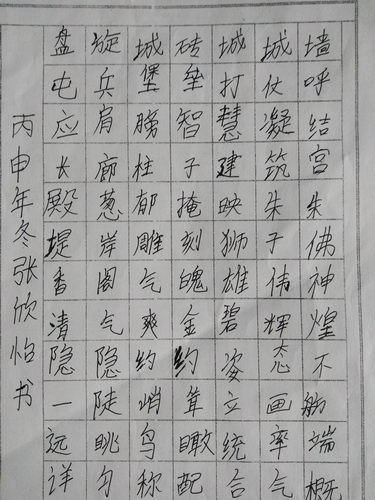 盘旋城砖城城墙
屯兵堡垒打仗呼
应肩膀智慧凝结
长廊柱子建筑宫
殿葱郁掩映朱朱
堤岸雕刻狮子佛
香阁气魄雄伟神
清气爽金碧辉煌
隐隐约约姿态不
一陡峭耸立画舫
远眺鸟瞰统率端
详匀称配合气概
丙申年冬张欣怡书